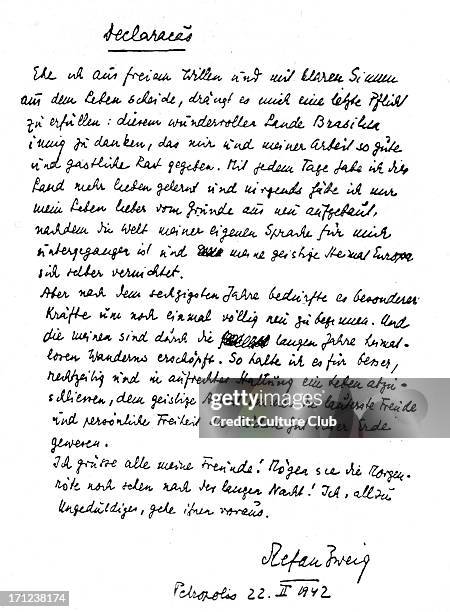 Declaracão
Ehe ich aus freiem Willen und mit klaren Sinnen
aus dem Leben scheide, drängt es mich eine letzte Pflicht
zu erfüllen: diesem wundervollen Lande Brasilien
innig zu danken, das mir und meiner Arbeit so gute
und gastliche Rast gegeben. Mit jedem Tage habe ich dies
Land mehr lieben gelernt und nirgends hätte ich mir
mein Leben lieber vom Grunde aus neu aufgebaut,
nachdem die Welt meiner eigenen Sprache für mich
untergegangen ist und meine geistige Heimat Europa
sich selber vernichtet.
Aber nach dem sechzigsten Jahre bedürfte es besonderer
Kräfte um noch einmal völlig neu zu beginnen. Und
die meinen sind durch die langen Jahre heimat-
losen Wanderns erschöpft. So halte ich es für besser,
rechtzeitig und in aufrechter Haltung ein Leben abzu-
schliessen, dem geistige lauterste Freude
und persönliche Freiheit Erde
gewesen.
Ich grüsse alle meine Freunde! Mögen sie die Morgen-
röte noch sehen nach der langen Nacht! Ich, allzu
Ungeduldiger, gehe ihnen voraus.
Stefan Zweig
Petropolis 22. II 1942
gettyimages
Culture Club
171238174